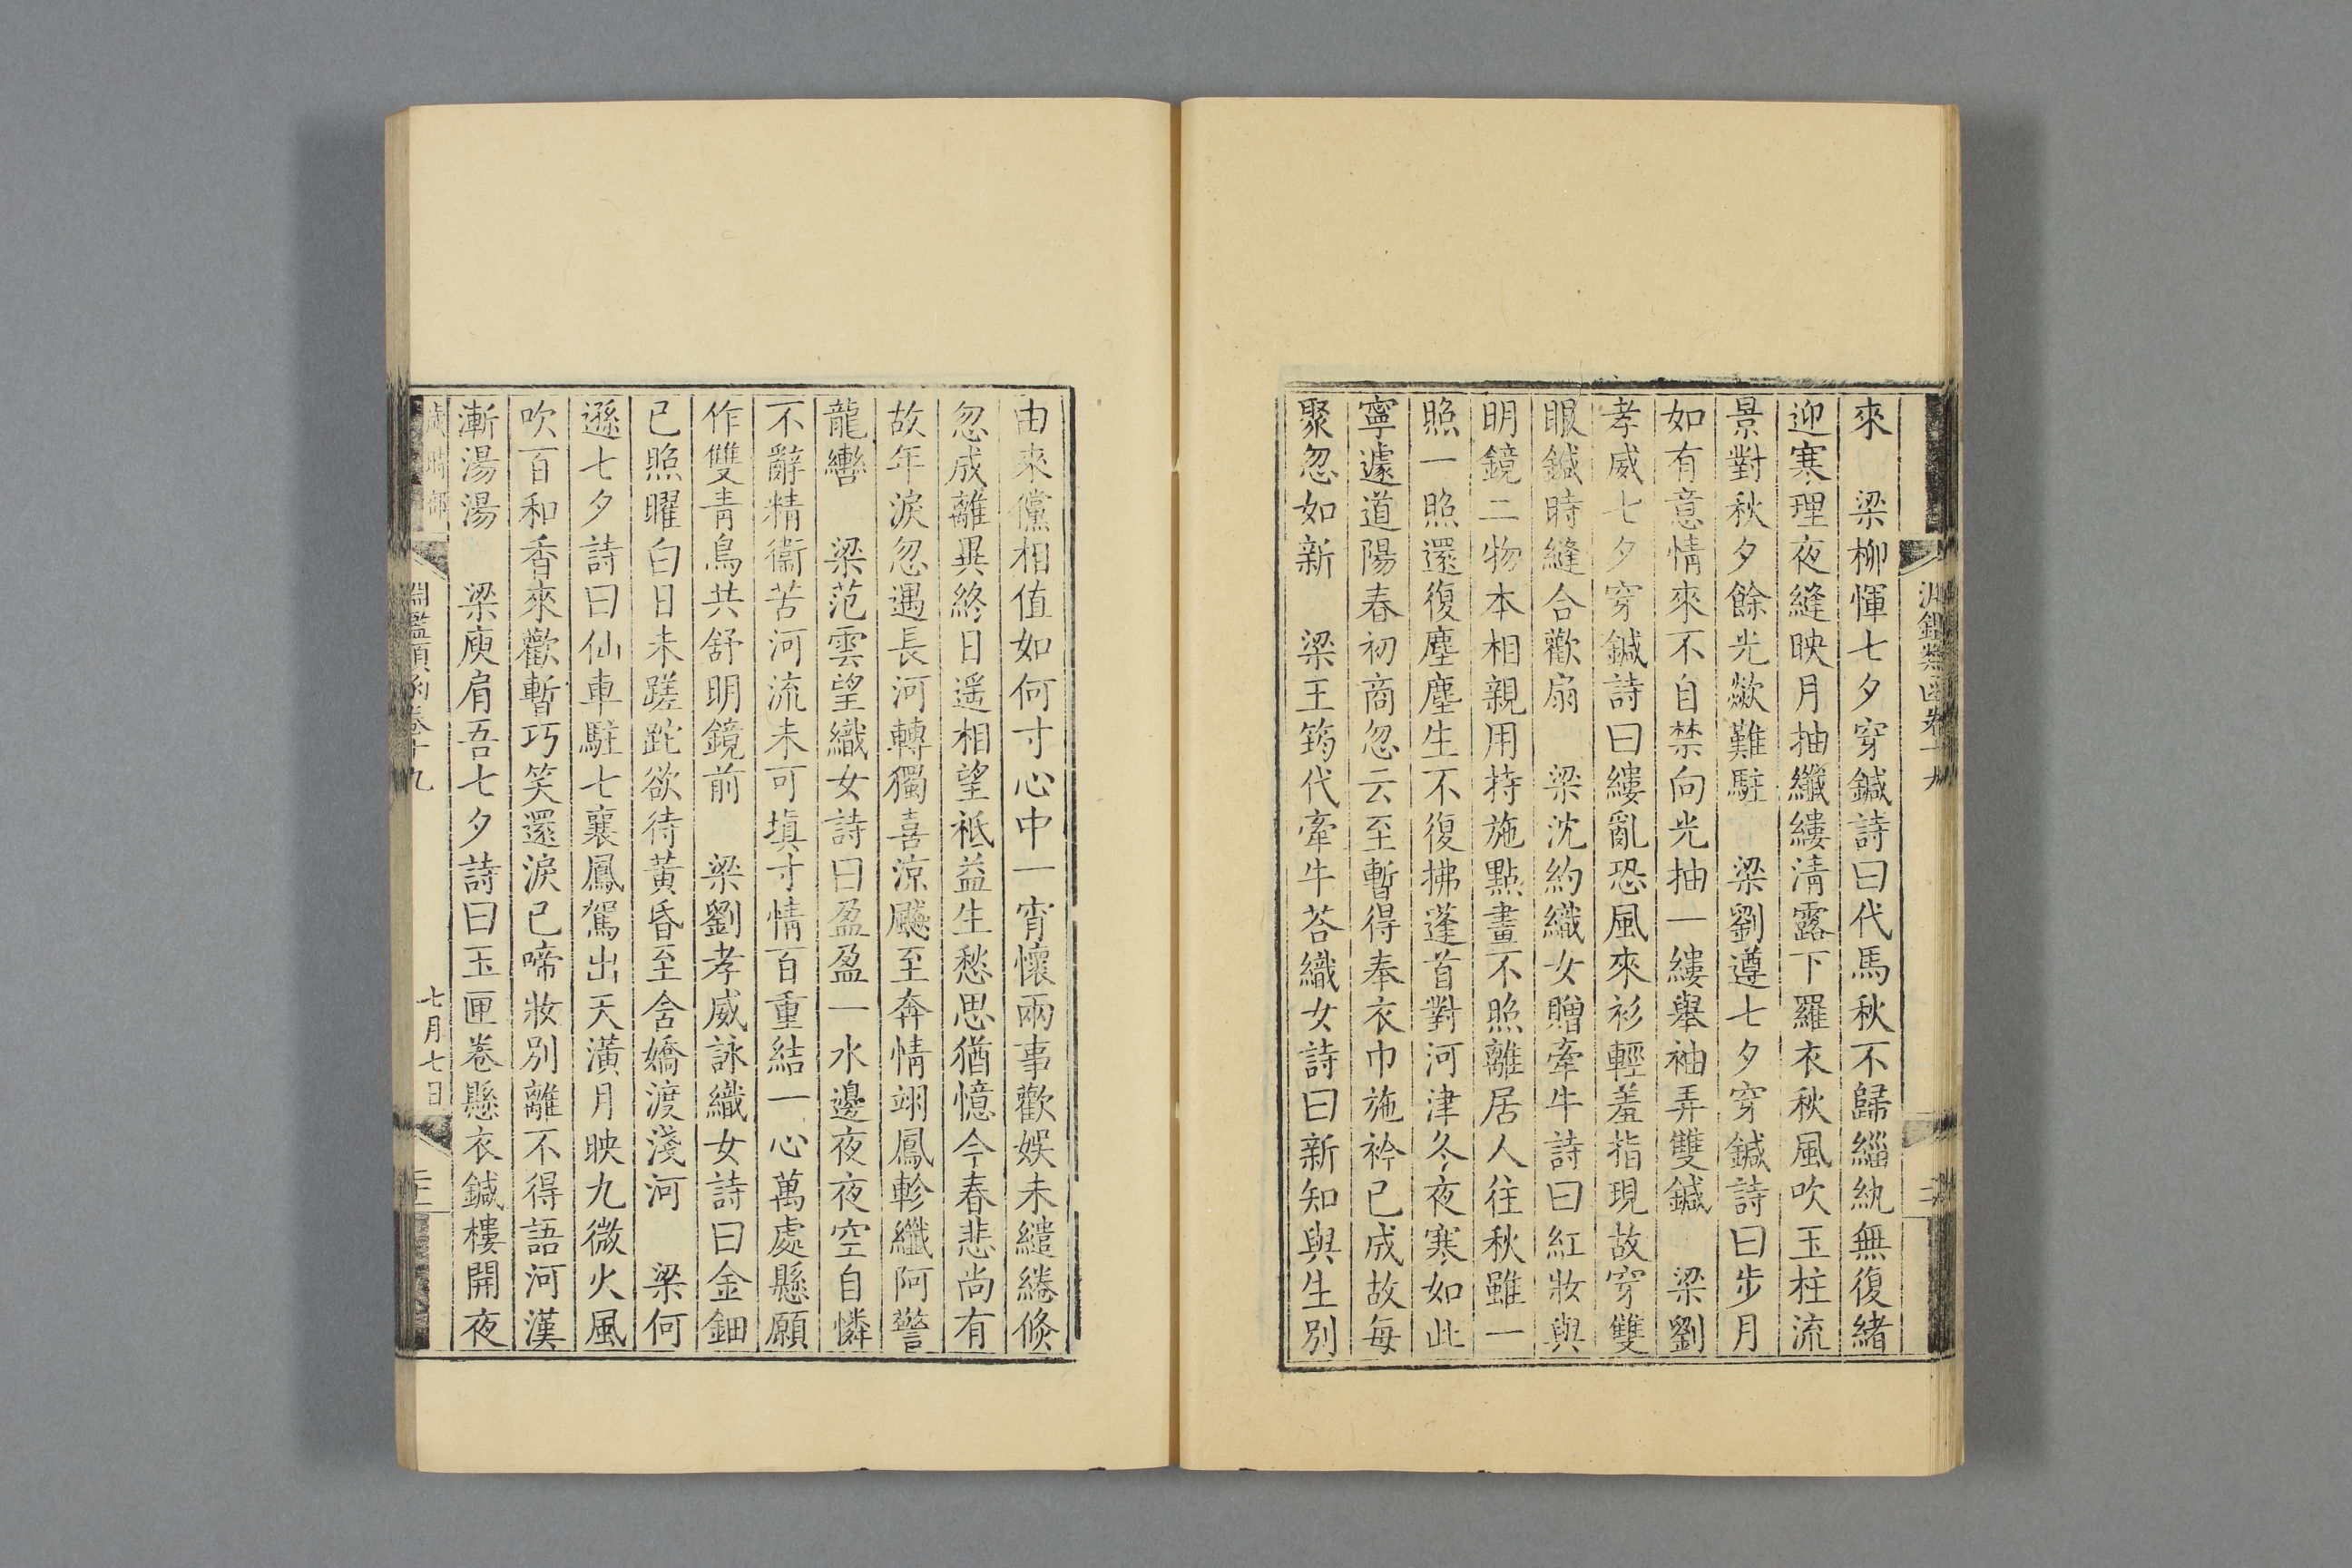 來　梁柳惲七夕穿鍼詩曰代馬秋不歸緇紈無復緒
迎寒理夜縫映月抽纖縷清露下羅衣秋風吹玉柱流
景對秋夕餘光歘難駐　梁劉遵七夕穿鍼詩曰步月
如有意情來不自禁向光抽一縷舉袖弄雙鍼　梁劉
孝威七夕穿鍼詩曰縷亂恐風來衫輕羞指現故穿雙
眼鍼時縫合歡扇　梁沈約織女贈牽牛詩曰紅妝與
明鏡二物本相親用持施點畫不照離居人往秋雖一
照一照還復塵塵生不復拂蓬首對河津冬夜寒如此
寧遽道陽春初商忽云至暫得奉衣巾施衿已成故每
聚忽如新　梁王筠代牽牛荅織女詩曰新知與生別
由來儻相值如何寸心中一宵懷兩事歡娛未繾綣倐
忽成離異終日遥相望祗益生愁思猶憶今春悲尚有
故年淚忽遇長河轉獨喜涼飈至奔情翊鳳軫纖阿警
龍轡　梁范雲望織女詩曰盈盈一水邊夜夜空自憐
不辭精衞苦河流未可填寸情百重結一心萬處懸願
作雙青鳥共舒明鏡前　梁劉孝威詠織女詩曰金鈿
已照曜白日未蹉跎欲待黃昏至含嬌渡淺河　梁何
遜七夕詩曰仙車駐七襄鳳駕出天潢月映九微火風
吹百和香來歡暫巧笑還淚已啼妝別離不得語河漢
漸湯湯　梁庾肩吾七夕詩曰玉匣卷懸衣鍼樓開夜
歲時部
淵鑑類函卷十九
七月七日